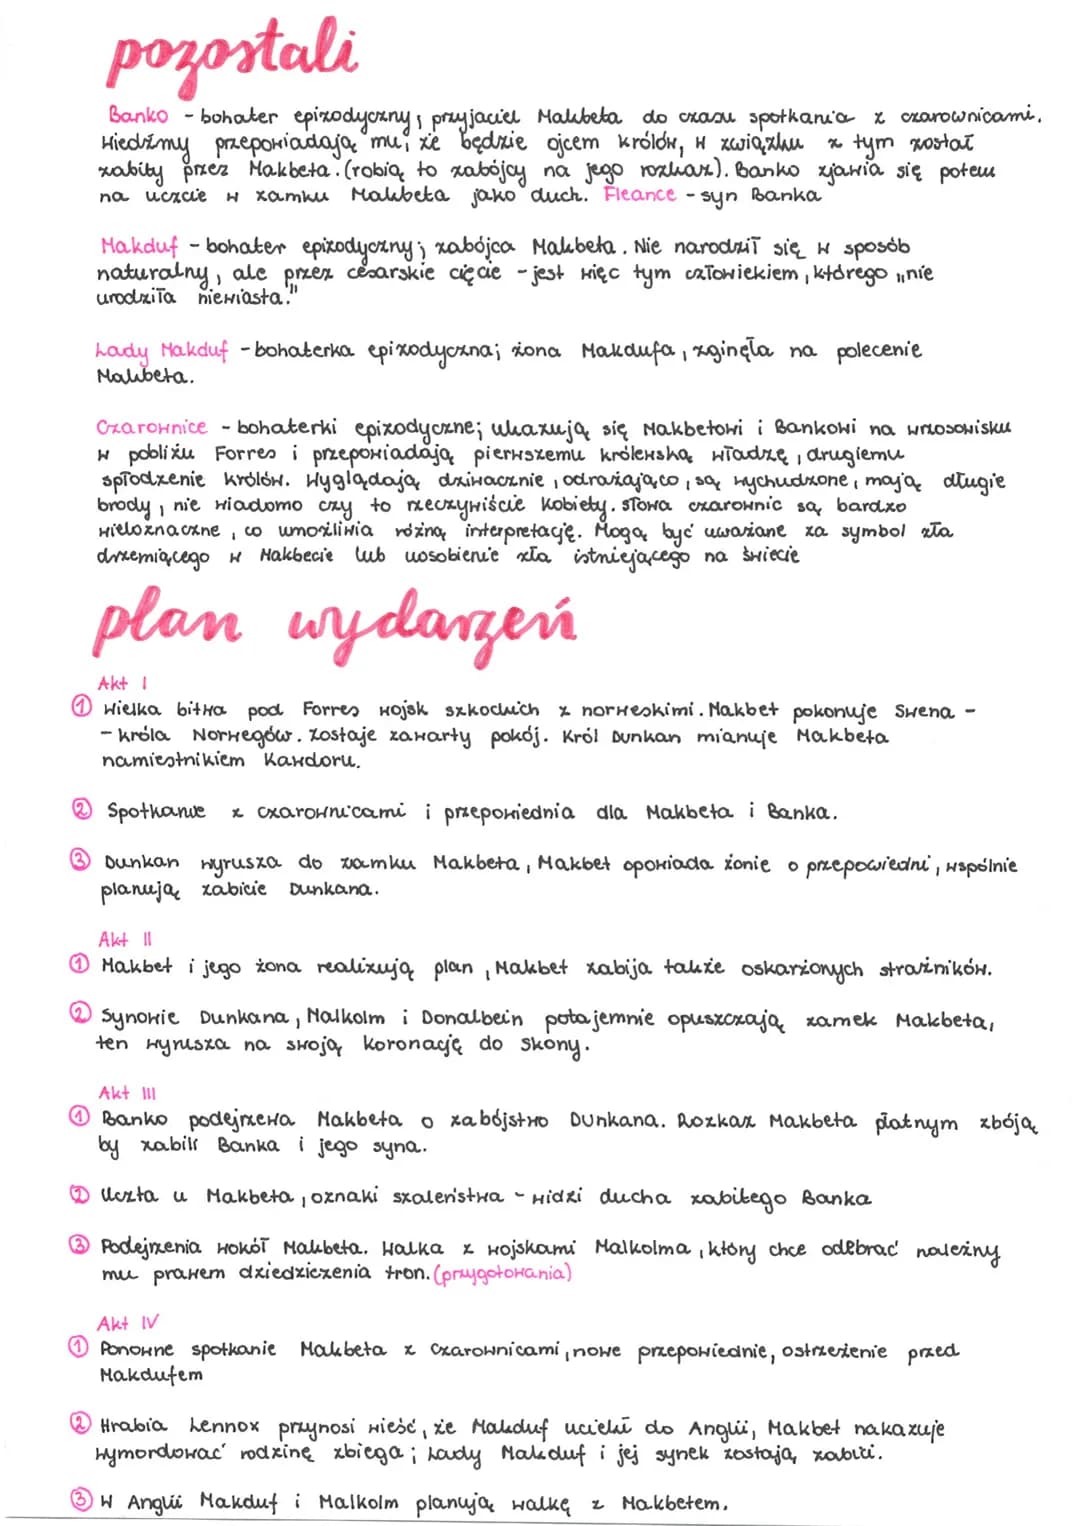 pozostali
Banko - bohater epizodyczny; przyjaciel Makbeta do czasu spotkania z czarownicami.
Wiedźmy przepowiadają mu, że będzie ojcem królów, w związku z tym został
zabity przez Makbeta. (robią to zabójcy na jego rozkaz). Banko zjawia się potem
na uczcie w zamku Makbeta jako duch. Fleance - syn Banka
Makduf - bohater epizodyczny; zabójca Makbeta. Nie narodził się w sposób
naturalny, ale przez cesarskie cięcie - jest więc tym człowiekiem, którego „nie
urodziła niewiasta."
Lady Makduf - bohaterka epizodyczna; żona Makdufa, zginęła na polecenie
Makbeta.
Czarownice - bohaterki epizodyczne; ukazują się Makbetowi i Bankowi na wrzosowisku
w pobliżu Forres i przepowiadają pierwszemu królewską władzę, drugiemu
spłodzenie królów. Wyglądają dziwacznie, odrażająco, są wychudzone, mają długie
brody, nie wiadomo czy to rzeczywiście kobiety. Słowa czarownic są bardzo
wieloznaczne, co umożliwia różną interpretację. Mogą być uważane za symbol zła
drzemiącego w Makbecie lub uosobienie zła istniejącego na świecie
plan wydarzeń
Akt I
① Wielka bitwa pod Forres wojsk szkockich z norweskimi. Makbet pokonuje Swena -
- króla Norwegów. Zostaje zawarty pokój. Król Dunkan mianuje Makbeta
namiestnikiem Kawdoru.
② Spotkanie z czarownicami i przepowiednia dla Makbeta i Banka.
③ Dunkan wyrusza do zamku Makbeta, Makbet opowiada żonie o przepowiedni, wspólnie
planują zabicie Dunkana.
Akt II
① Makbet i jego żona realizują plan, Makbet zabija także oskarżonych strażników.
② Synowie Dunkana, Malkolm i Donalbein potajemnie opuszczają zamek Makbeta,
ten wyrusza na swoją koronację do Skony.
Akt III
① Banko podejrzewa Makbeta o zabójstwo Dunkana. Rozkaz Makbeta płatnym zbóją
by zabili Banka i jego syna.
② Uczta u Makbeta, oznaki szaleństwa - widzi ducha zabitego Banka
③ Podejrzenia wokół Makbeta. Walka z wojskami Malkolma, który chce odebrać należny
mu prawem dziedziczenia tron. (przygotowania)
Akt IV
① Ponowne spotkanie Makbeta z Czarownicami, nowe przepowiednie, ostrzeżenie przed
Makdufem
② Hrabia Lennox przynosi wieść, że Makduf uciekł do Anglii, Makbet nakazuje
wymordować rodzinę zbiega; Lady Makduf i jej synek zostają zabici.
③ W Anglii Makduf i Malkolm planują walkę z Makbetem.